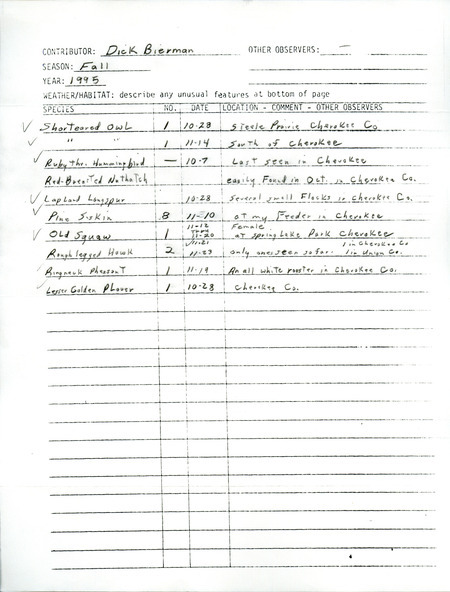 CONTRIBUTOR: Dick Bierman OTHER OBSERVERS: —
SEASON: Fall
YEAR: 1995
WEATHER/HABITAT: describe any unusual features at bottom of page
SPECIES NO. DATE LOCATION - COMMENT - OTHER OBSERVERS
✓ Shorteared Owl 1 10-28 Steele Prairie Cherokee Co.
✓ " " 1 11-14 South of Cherokee
✓ Ruby thr. Hummingbird — 10-7 Last seen in Cherokee
Red-Breasted Nuthatch easily Found in Oct. in Cherokee Co.
✓ Lapland Longspur 10-28 Several small Flocks in Cherokee Co.
✓ Pine Siskin 8 11-10 at my Feeder in Cherokee
✓ Old Squaw 1 11-12 thru 11-20 Female at Spring Lake Park Cherokee
Rough legged Hawk 2 11-21 11-23 only one seen so far. 1 in Cherokee Co 1 in Union Co.
Ringneck Pheasant 1 11-19 An all white rooster in Cherokee Co.
Lesser Golden Plover 1 10-28 Cherokee Co.